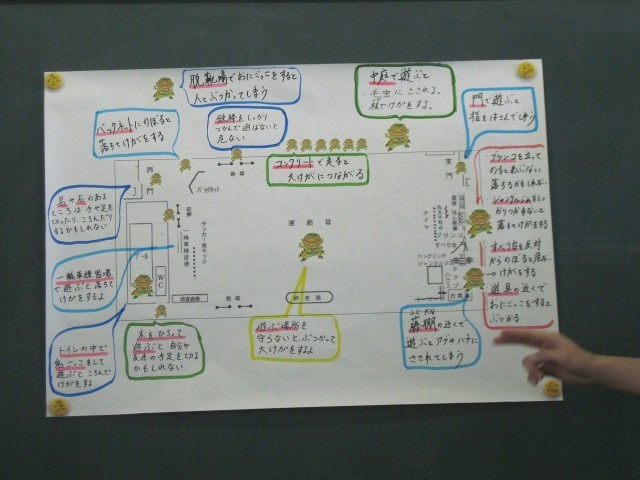 脱靴場でおにごっこをすると
人とぶつかってしまう
中庭で遊ぶと
毛虫にさされる。
枝でけがをする。
門で遊ぶと
指をはさんでしまう
バックネットにのぼると
落ちてけがをする
鉄棒をしっかり
つかんで遊ばないと
危ない
コンクリートで走ると
大けがにつながる
ブランコを立って
のるとあぶない
落ちるかもしれない
ジャングルジムをしっ
かりつかまないと
落ちてけがをする
すべり台を反対
からのぼると危ない
→けがをする
遊具の近くで
おにごっこをすると
ぶつかる
ところは手や足を
切ったり、ころんだり
するかもしれない
一輪車練習場
で遊ぶと落ちて
けがをするよ
トイレの中で
鬼ごっこをして
遊ぶところんで
けがをするよ
木をひろって
遊ぶと自分や
友達の手足を切る
かもしれない
遊ぶ場所を
守らないと、ぶつかって
大けがをするよ
藤棚の近くで
遊ぶとアブやハチに
さされてしまう
西門
バックネット
鉄棒
東門
運動場
サッカー・壁キック
一輪車練習場
タイヤ
ブランコ
すべり台
ジャングル
プール
WC
体育倉庫
鉄棒